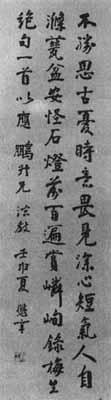 不勝思古憂時意畏見深心短氣人自
滌甕盆安怪石燈前百遍賞嶙峋錄梅生
絕句一首以應鵬升兄法 壬申夏